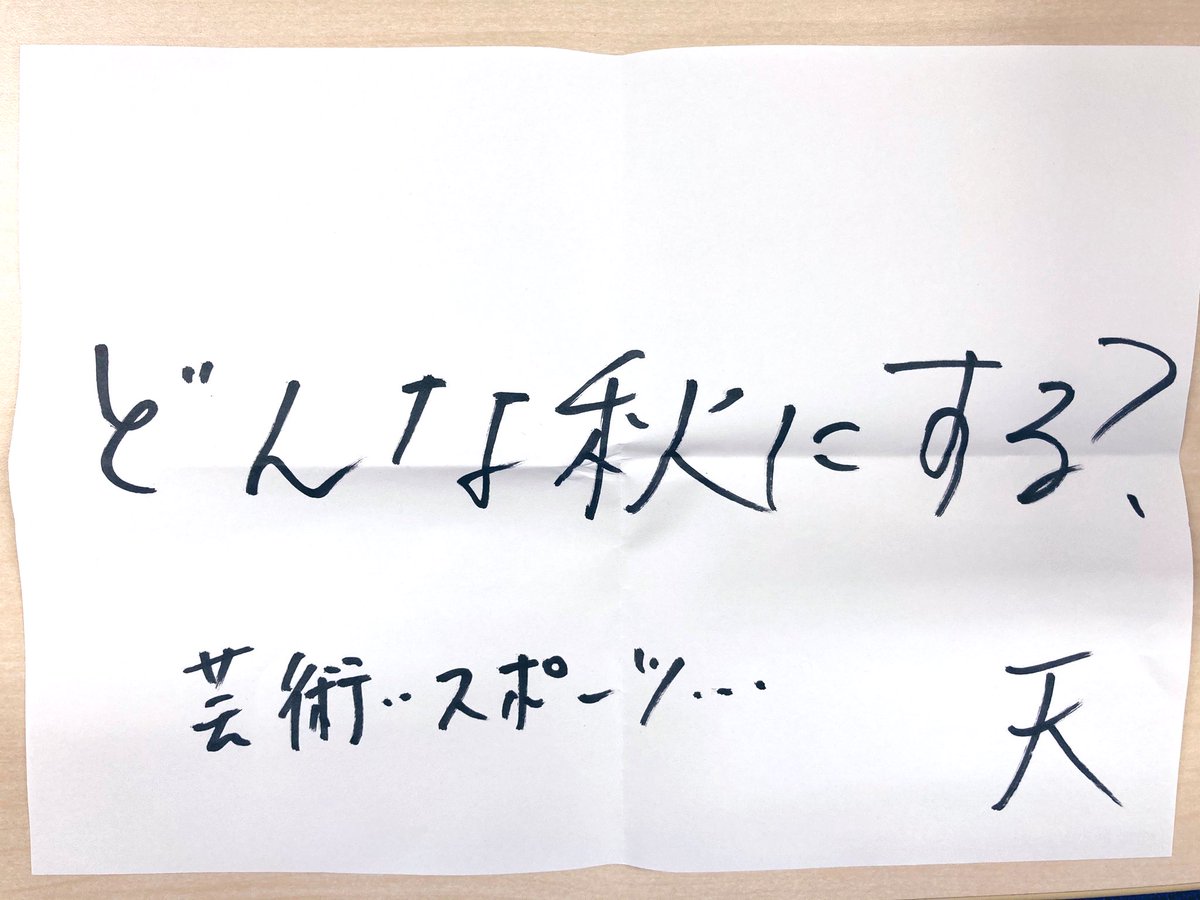 どんな秋にする?
芸術‥スポーツ…
天